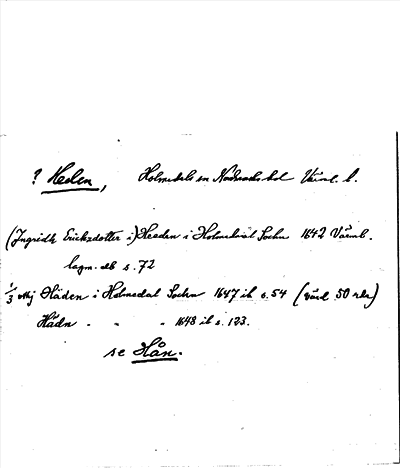 ? Heden, Holmedals sn Nordmarks hd Värml. l.
(Ingridh Erichzdotter i) Heeden i Holmedal Sochn 1642 Värml.
lagm. db s. 72
1/3 mtj Häden i Holmedal Sochn 1647 ib s. 54 (värd 50 rdr)
Hädn " " " 1648 ib s. 123.
se Hån.